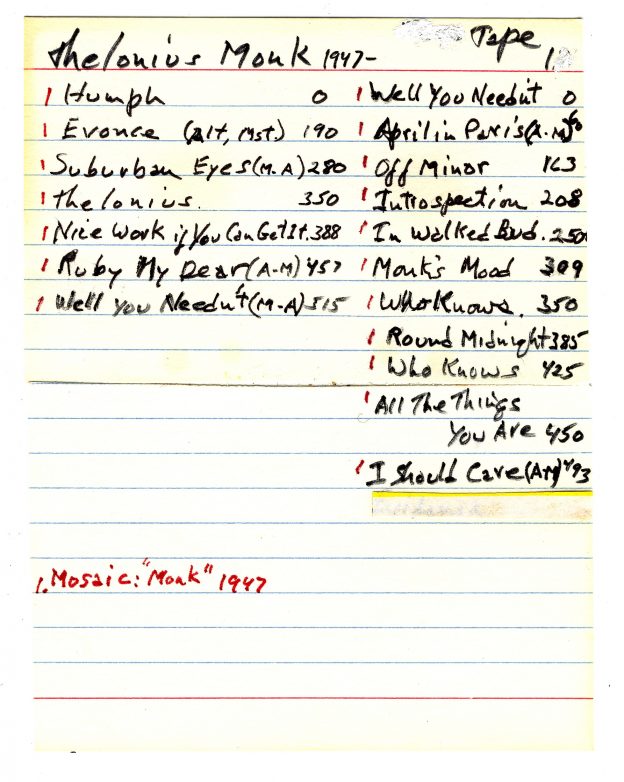 Thelonius Monk 1947- Tape 1
1 Humph 0
1 Evonce (Alt, Mst) 190
1 Suburban Eyes (M-A) 280
1 Thelonius. 350
1 Nice Work if You Can Get It. 388
1 Ruby My Dear (A-M) 457
1 Well You Needn't (M-A) 515
1 Well You Needn't 0
1 April in Paris (A-M)
1 Off Minor 163
1 Introspection 208
1 In Walked Bud. 250
1 Monk's Mood 309
1 Who Knows. 350
1 Round Midnight 385
1 Who Knows 425
1 All The Things
You Are 450
1 I Should Care (AM) 493
1. Mosaic: "Monk" 1947